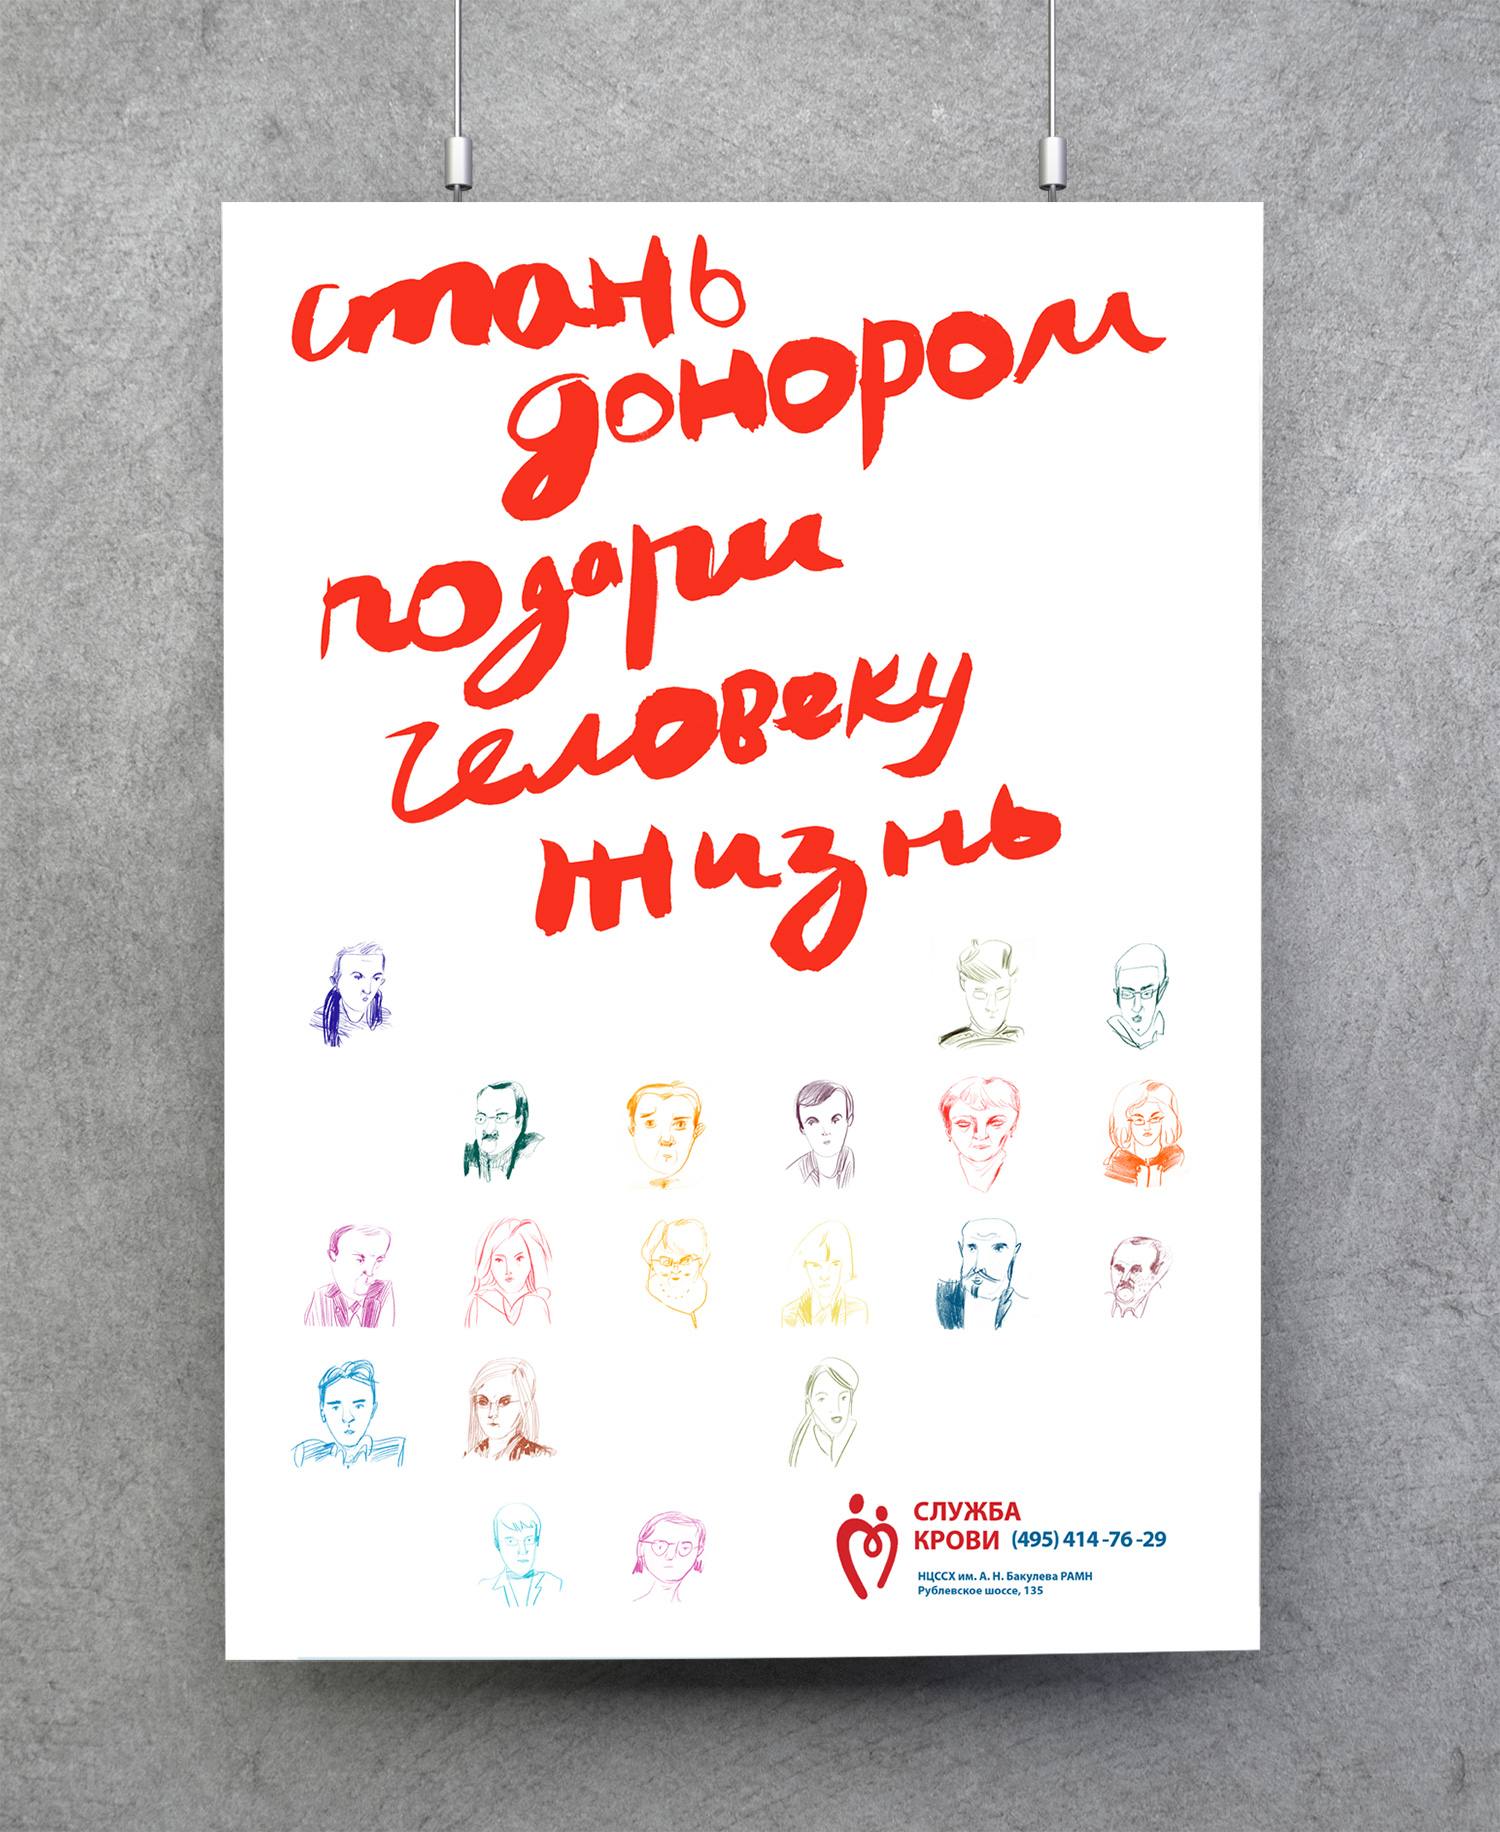 стань
донором
подари
человеку
жизнь
СЛУЖБА
КРОВИ (495) 414 -76 -29
НЦССХ им. А. Н. Бакулева РАМН
Рублевское шоссе, 135